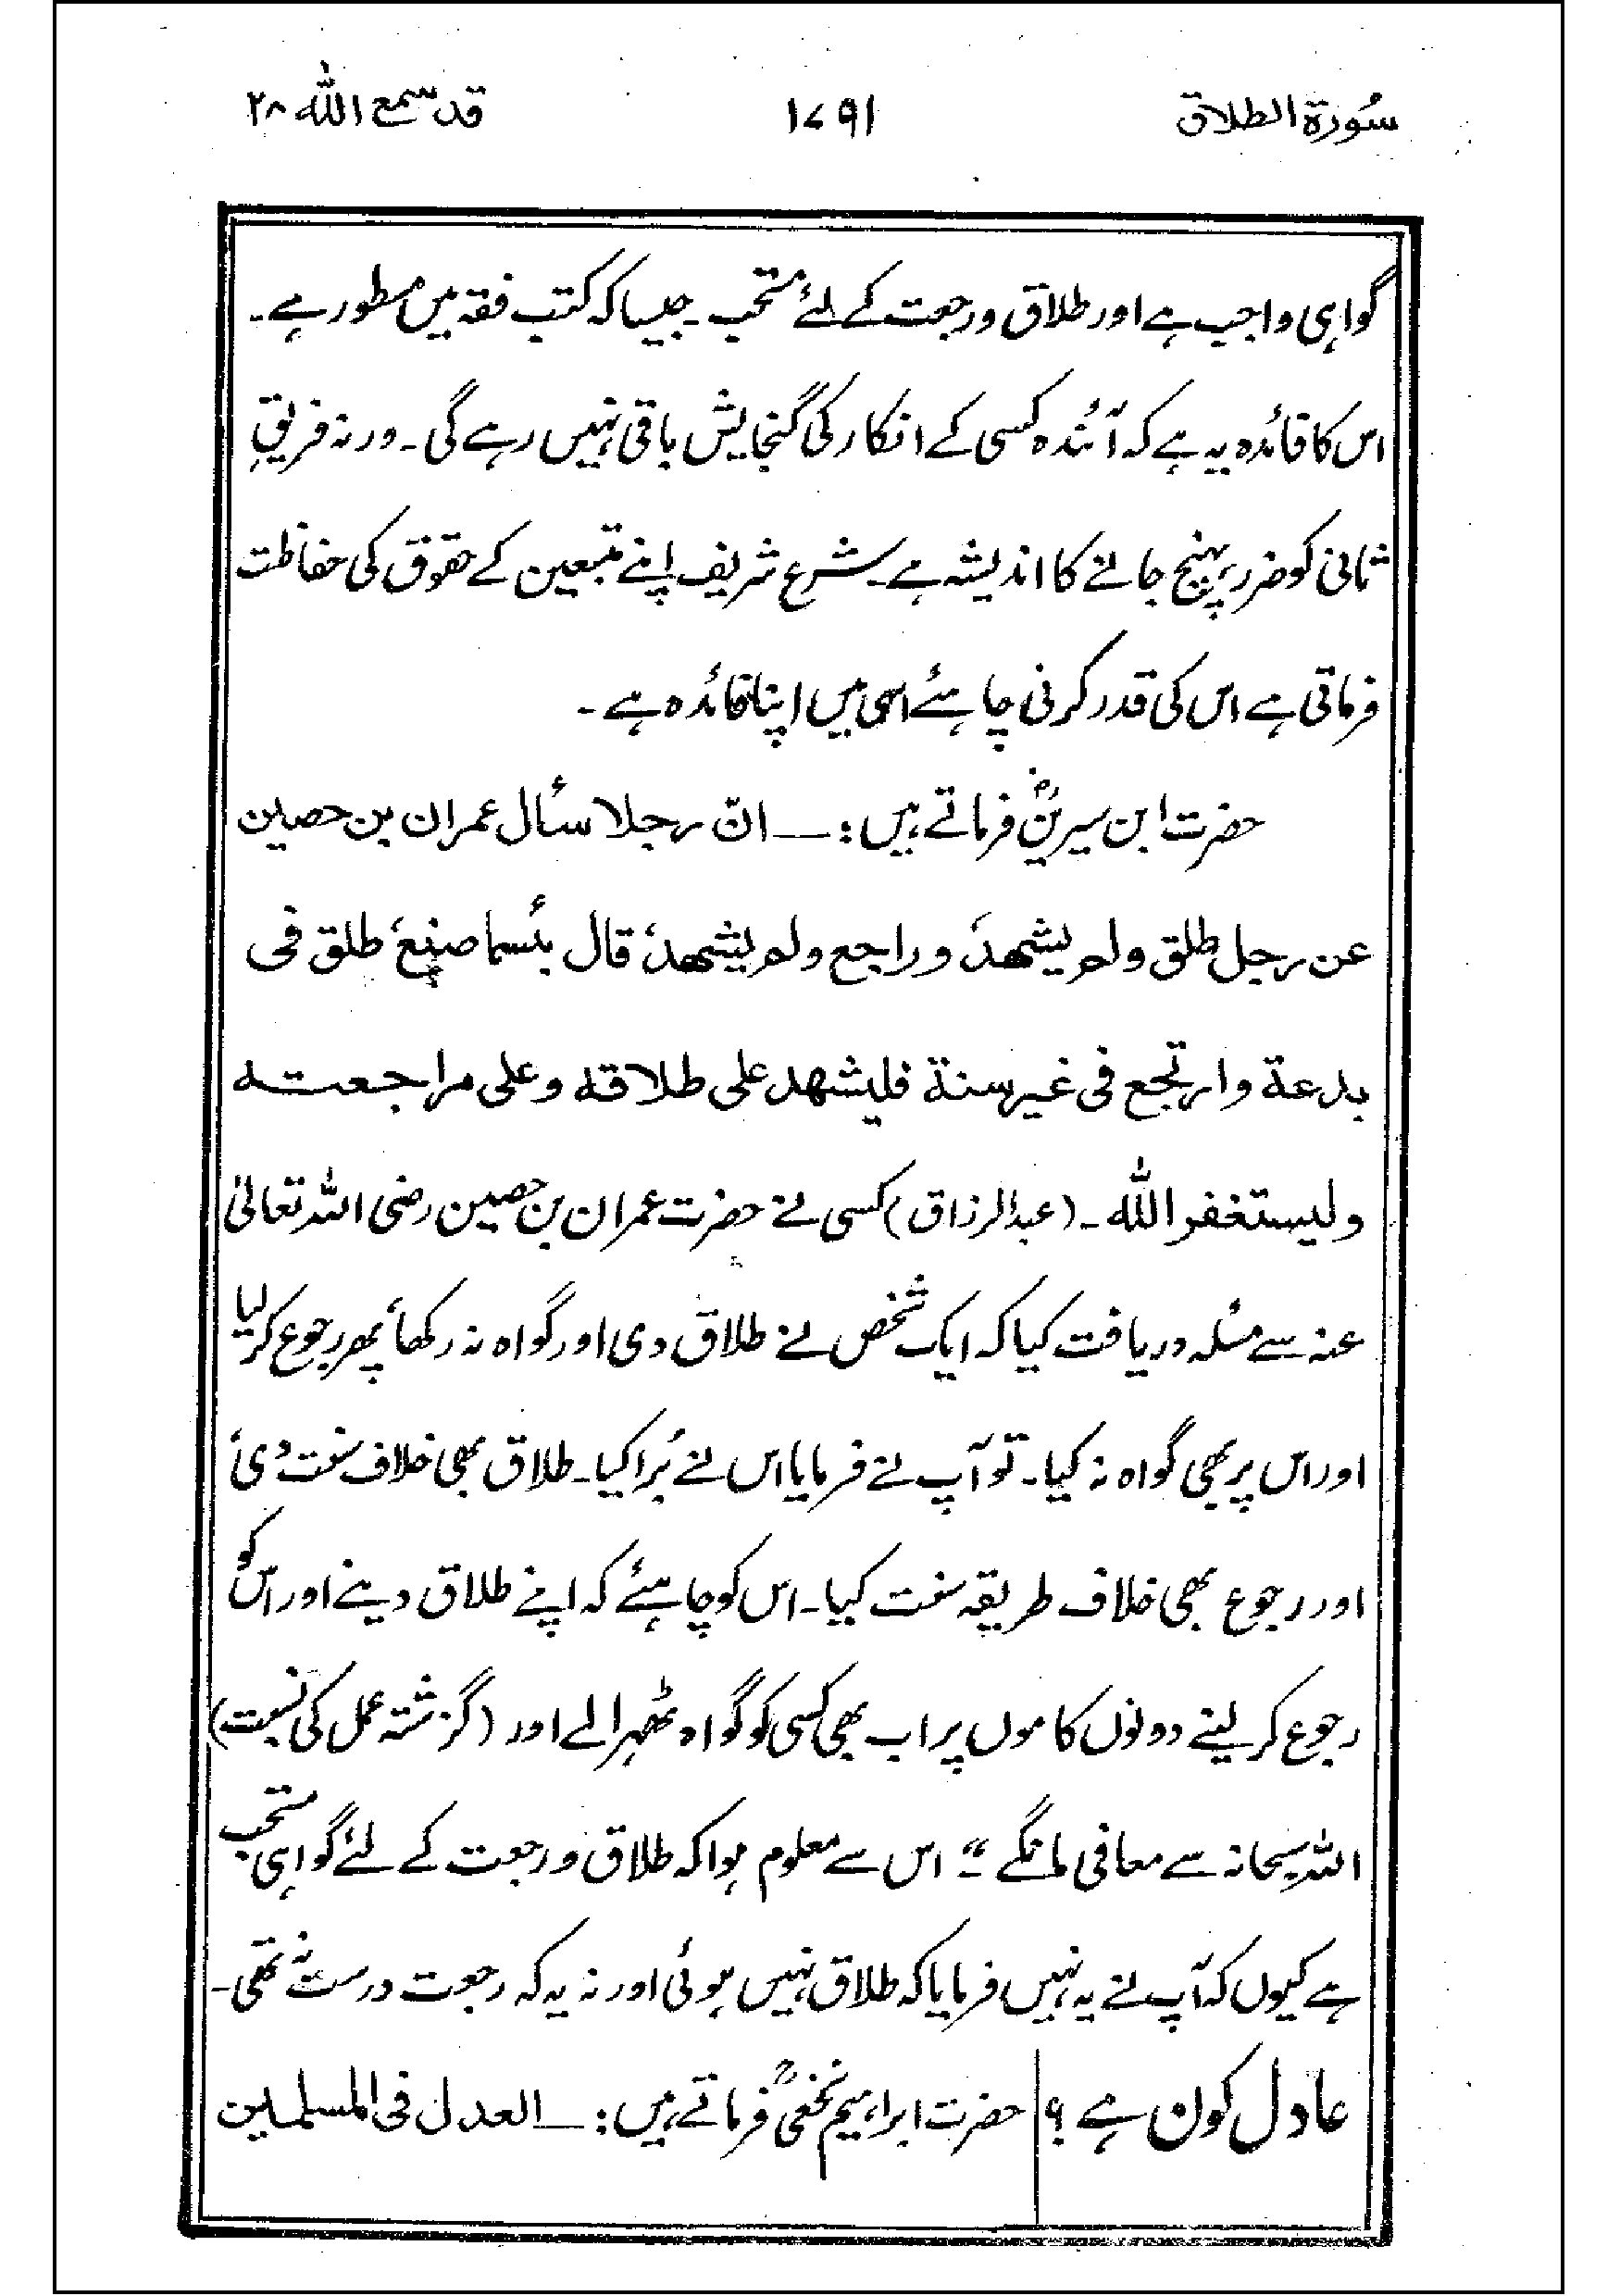 سُورۃ الطلاق ۱۷۹۱ قد سمع اللہ ۲۸
گواہی واجب ہے اور طلاق و رجعت کے لئے مستحب۔ جیسا کہ کتب فقہ میں مسطور ہے۔
اس کا فائدہ یہ ہے کہ آئندہ کسی کے انکار کی گنجایش باقی نہیں رہے گی۔ ورنہ فریقِ
ثانی کو ضرر پہنچ جانے کا اندیشہ ہے۔ شرع شریف اپنے متبعین کے حقوق کی حفاظت
فرماتی ہے اس کی قدر کرنی چاہئے اسی میں اپنا فائدہ ہے۔
حضرت ابن سیرینؓ فرماتے ہیں:۔ انّ رجلا سأل عمران بن حصین
عن رجل طلق ولم یشھد، وراجع ولم یشھد، قال بئسما صنع، طلق فی
بدعة وارتجع فی غیر سنة فلیشھد علی طلاقه وعلی مراجعته
ولیستغفر اللہ۔ (عبدالرزاق) کسی نے حضرت عمران بن حصین رضی اللہ تعالیٰ
عنہ سے مسئلہ دریافت کیا کہ ایک شخص نے طلاق دی اور گواہ نہ رکھا، پھر رجوع کرلیا
اور اس پر بھی گواہ نہ کیا۔ تو آپ نے فرمایا اس نے بُرا کیا۔ طلاق بھی خلاف سنت دی،
اور رجوع بھی خلاف طریقہ سنت کیا۔ اس کو چاہئے کہ اپنے طلاق دینے اور اس کو
رجوع کر لینے دونوں کاموں پر اب بھی کسی کو گواہ ٹھہرا لے اور (گزشتہ عمل کی نسبت)
اللہ سبحانہ سے معافی مانگے"۔ اس سے معلوم ہوا کہ طلاق و رجعت کے لئے گواہی مستحب
ہے کیوں کہ آپ نے یہ نہیں فرمایا کہ طلاق نہیں ہوئی اور نہ یہ کہ رجعت درست نہ تھی۔
عادل کون ہے؟ حضرت ابراہیم نخعیؒ فرماتے ہیں:۔ العدل فی المسلمین